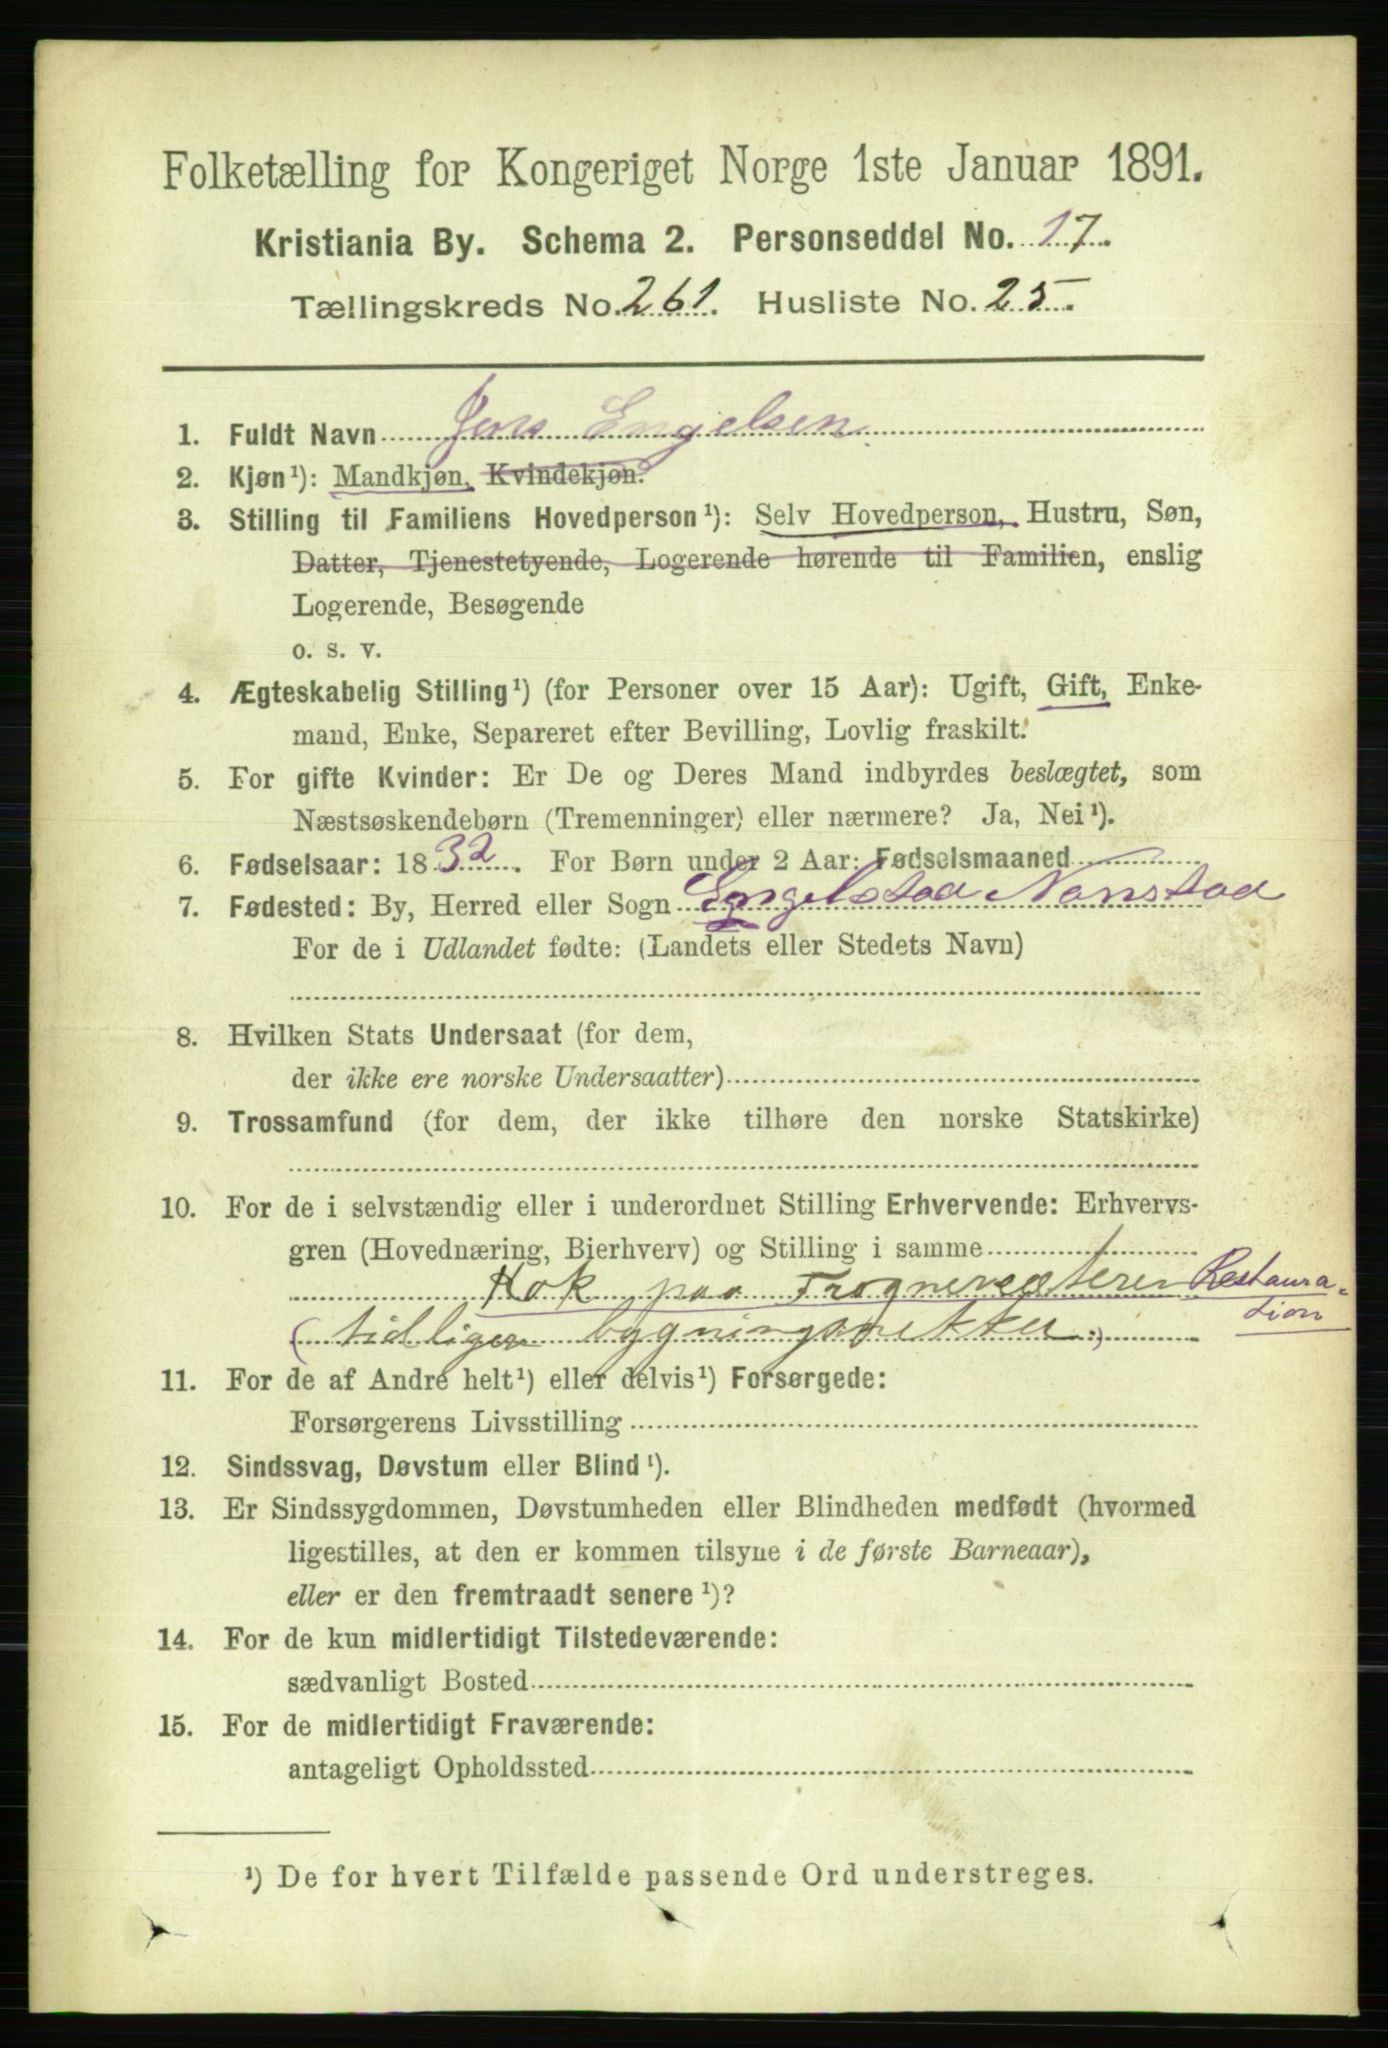 Folketælling for Kongeriget Norge 1ste Januar 1891.
Kristiania By. Schema 2. Personseddel No. 17.
Tællingskreds No. 261. Husliste No. 25.
1. Fuldt Navn Jens Engelsen
2. Kjøn¹): Mandkjøn, Kvindekjøn.
3. Stilling til Familiens Hovedperson¹): Selv Hovedperson, Hustru, Søn,
Datter, Tjenestetyende, Logerende hørende til Familien, enslig
Logerende, Besøgende
o. s. v.
4. Ægteskabelig Stilling¹) (for Personer over 15 Aar): Ugift, Gift, Enke-
mand, Enke, Separeret efter Bevilling, Lovlig fraskilt.
5. For gifte Kvinder: Er De og Deres Mand indbyrdes beslægtet, som
Næstsøskendebørn (Tremenninger) eller nærmere? Ja, Nei¹).
6. Fødselsaar: 1832. For Børn under 2 Aar: Fødselsmaaned
7. Fødested: By, Herred eller Sogn Engelstad Nanstad
For de i Udlandet fødte: (Landets eller Stedets Navn)
8. Hvilken Stats Undersaat (for dem,
der ikke ere norske Undersaatter)
9. Trossamfund (for dem, der ikke tilhøre den norske Statskirke)
10. For de i selvstændig eller i underordnet Stilling Erhvervende: Erhvervs-
gren (Hovednæring, Bierhverv) og Stilling i samme
Kok paa Frognersæteren Restaura-
tion
(tidligere bygningssnekker.)
11. For de af Andre helt¹) eller delvis¹) Forsørgede:
Forsørgerens Livsstilling
12. Sindssvag, Døvstum eller Blind¹).
13. Er Sindssygdommen, Døvstumheden eller Blindheden medfødt (hvormed
ligestilles, at den er kommen tilsyne i de første Barneaar),
eller er den fremtraadt senere¹)?
14. For de kun midlertidigt Tilstedeværende:
sædvanligt Bosted
15. For de midlertidigt Fraværende:
antageligt Opholdssted
¹) De for hvert Tilfælde passende Ord understreges.